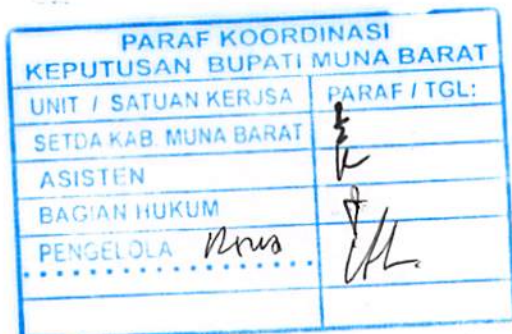 PARAF KOORDINASI
KEPUTUSAN BUPATI MUNA BARAT
UNIT / SATUAN KERJSA PARAF / TGL:
SETDA KAB. MUNA BARAT
ASISTEN
BAGIAN HUKUM
PENGELOLA